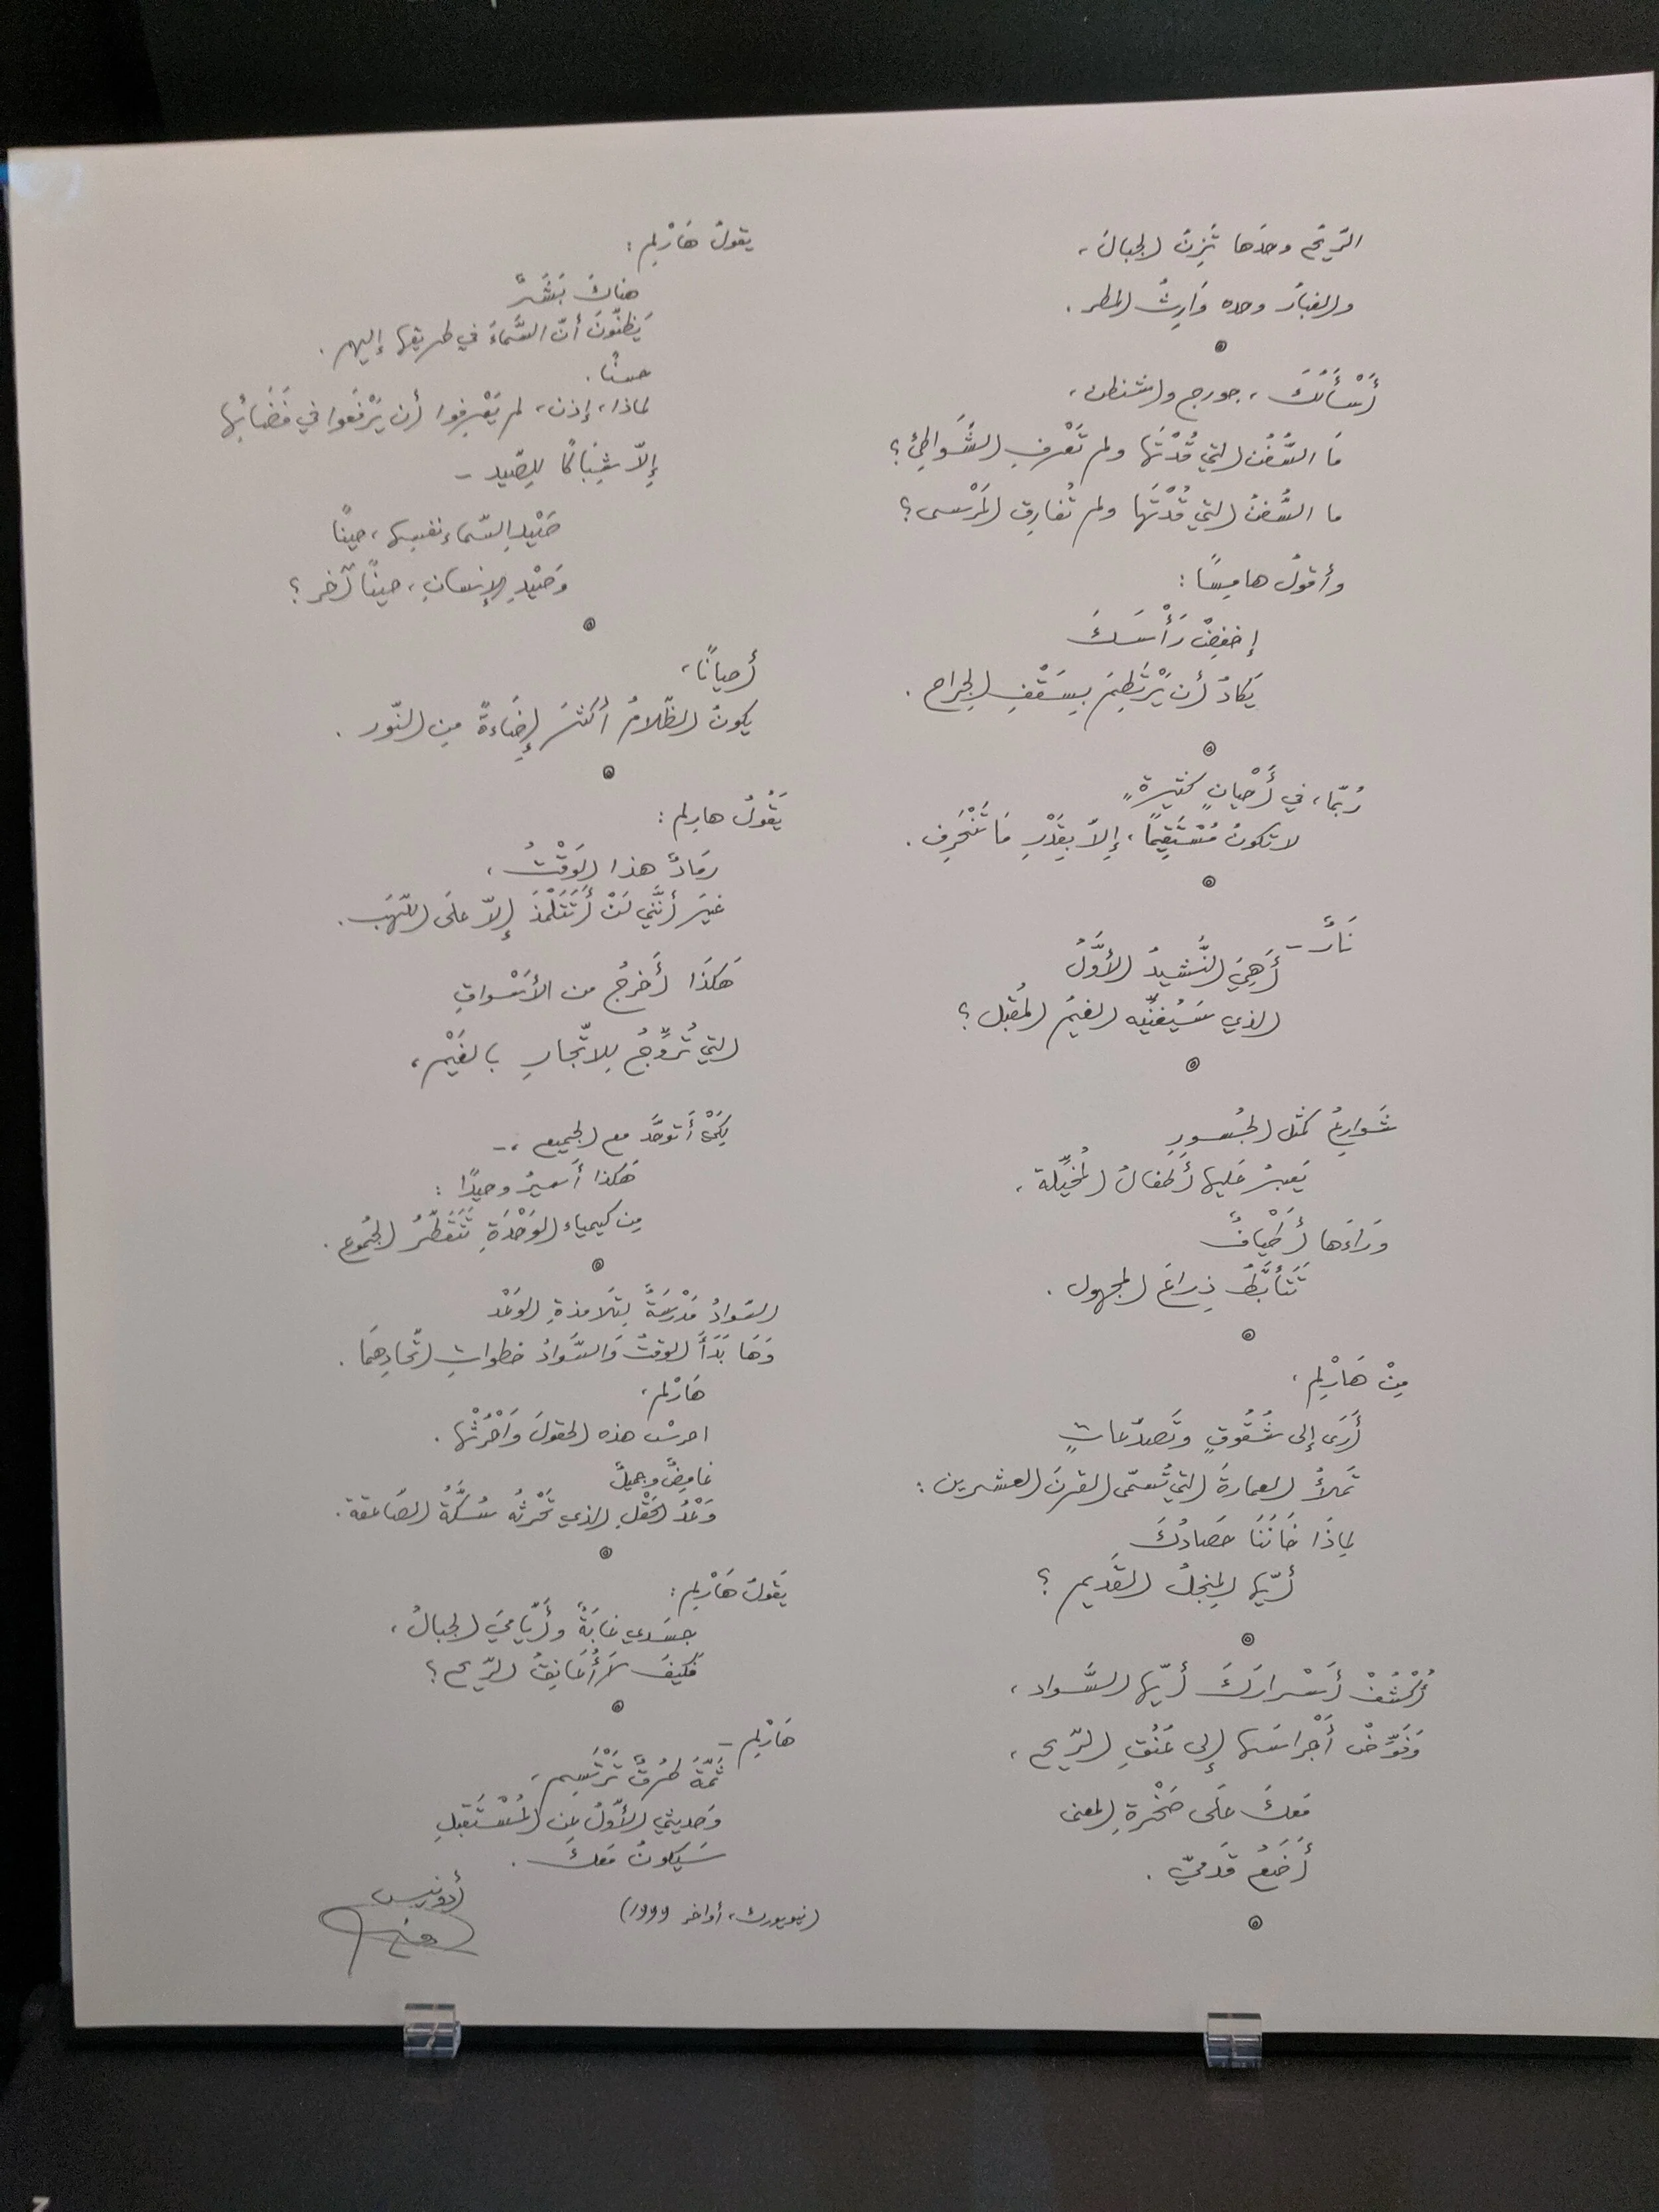 الرّيحُ وحدَها تَزِنُ الجبالَ،
والغبارُ وحده وَارِثُ المطر.
أَسْأَلُكَ، جورج واشنطن،
مَا السُّفُن التي قُدْتَها ولم تَعْرفِ الشَّوَاطِئ؟
ما السُّفنُ التي قُدْتَها ولم تُفارِق المَرْسى؟
وأقولُ هامِسًا:
إخفِضْ رَأْسَكَ
يَكادُ أن يَرْتَطِمَ بِسَقْفِ الجراح.
رُبّما، في أَحْيانٍ كثيرةٍ
لا تكونُ مُسْتَقِيمًا، إلاّ بِقَدْرِ مَا تَنْحَرِف.
نَارٌ –
أَهِيَ النَّشيدُ الأوَّلُ
الذي سَيُغنِّيه الغيمُ المُقبل؟
شَوارِعُ كمثل الجُسورِ
يَعبرُ عَليها أطفالُ المُخيِّلة،
وَرَاءَها أَطْيافٌ
تَتَأبَّطُ ذِراعَ المجهول.
مِنْ هَارْلِم،
أَرَى إلى شُقُوقٍ وتَصدّعاتٍ
تَملأُ العمارةَ التي تُسمّى القرنَ العشرين:
لماذَا خَانَنَا حَصادُكَ
أيّها المِنجلُ القَديم؟
أكْشفْ أَسْرارَكَ أيّها السَّواد،
وَفَوِّضْ أَجْراسَها إلى عُنُقِ الرّيح،
مَعكَ عَلَى صَخْرةِ المعنى
أَضَعُ قَدميّ.
يقولُ هَارْلِم:
هناكَ بَشَرٌ
يَظنّونَ أنّ السَّماءَ في طريقها إليهم.
حسنًا.
لماذا، إذن، لم يَعْرِفوا أن يَرْفَعوا في فَضَائها
إلاّ شِبَاكًا لِلصّيد –
صَيْدِ السّماءِ نفسِها، حينًا
وَصَيْدِ الإنسانِ، حينًا آخر؟
أحيانًا،
يكونُ الظّلامُ أكثرَ إضَاءةً مِن النّور.
يَقُولُ هارلم:
رمَادٌ هذا الوَقْتُ،
غيرَ أنَّني لَنْ أَتَتَلْمَذَ إلاّ علَى اللّهَب.
هَكذَا أَخرجُ من الأسْواقِ
التي تُروِّجُ لِلاتّجارِ بالغَيْم،
لِكَيْ أتوحَّد مع الجميع، –
هَكذا أسيرُ وحيدًا:
مِن كيمياء الوَحْدَةِ تَتَقطّرُ الجُموع.
السَّوادُ مَدْرسَةٌ لِتَلامذةِ الوَعْد
وَهَا بَدَأَ الوقتُ وَالسَّوادُ خطواتِ اتّحادِهِمَا.
هَارْلم،
احرسْ هذه الحقولَ وَاحْرُثْها.
غامِضٌ وجميلٌ
وَعْدُ الحَقْلِ الذي تَحْرثُه سِكَّةُ الصَّاعقة.
يَقولُ هَارْلِم:
جسَدي غابَةٌ وأَيّامِيَ الجبالُ،
فكيفَ لا أُعَانِقُ الرّيح؟
هَارْلِم –
ثَمّةَ طُرقٌ تَرْتَسِم،
وَحديثي الأوّلُ عن المُسْتَقبلِ
سَيكونُ مَعكَ.
(نيويورك، أواخر 1999)
أدونيس